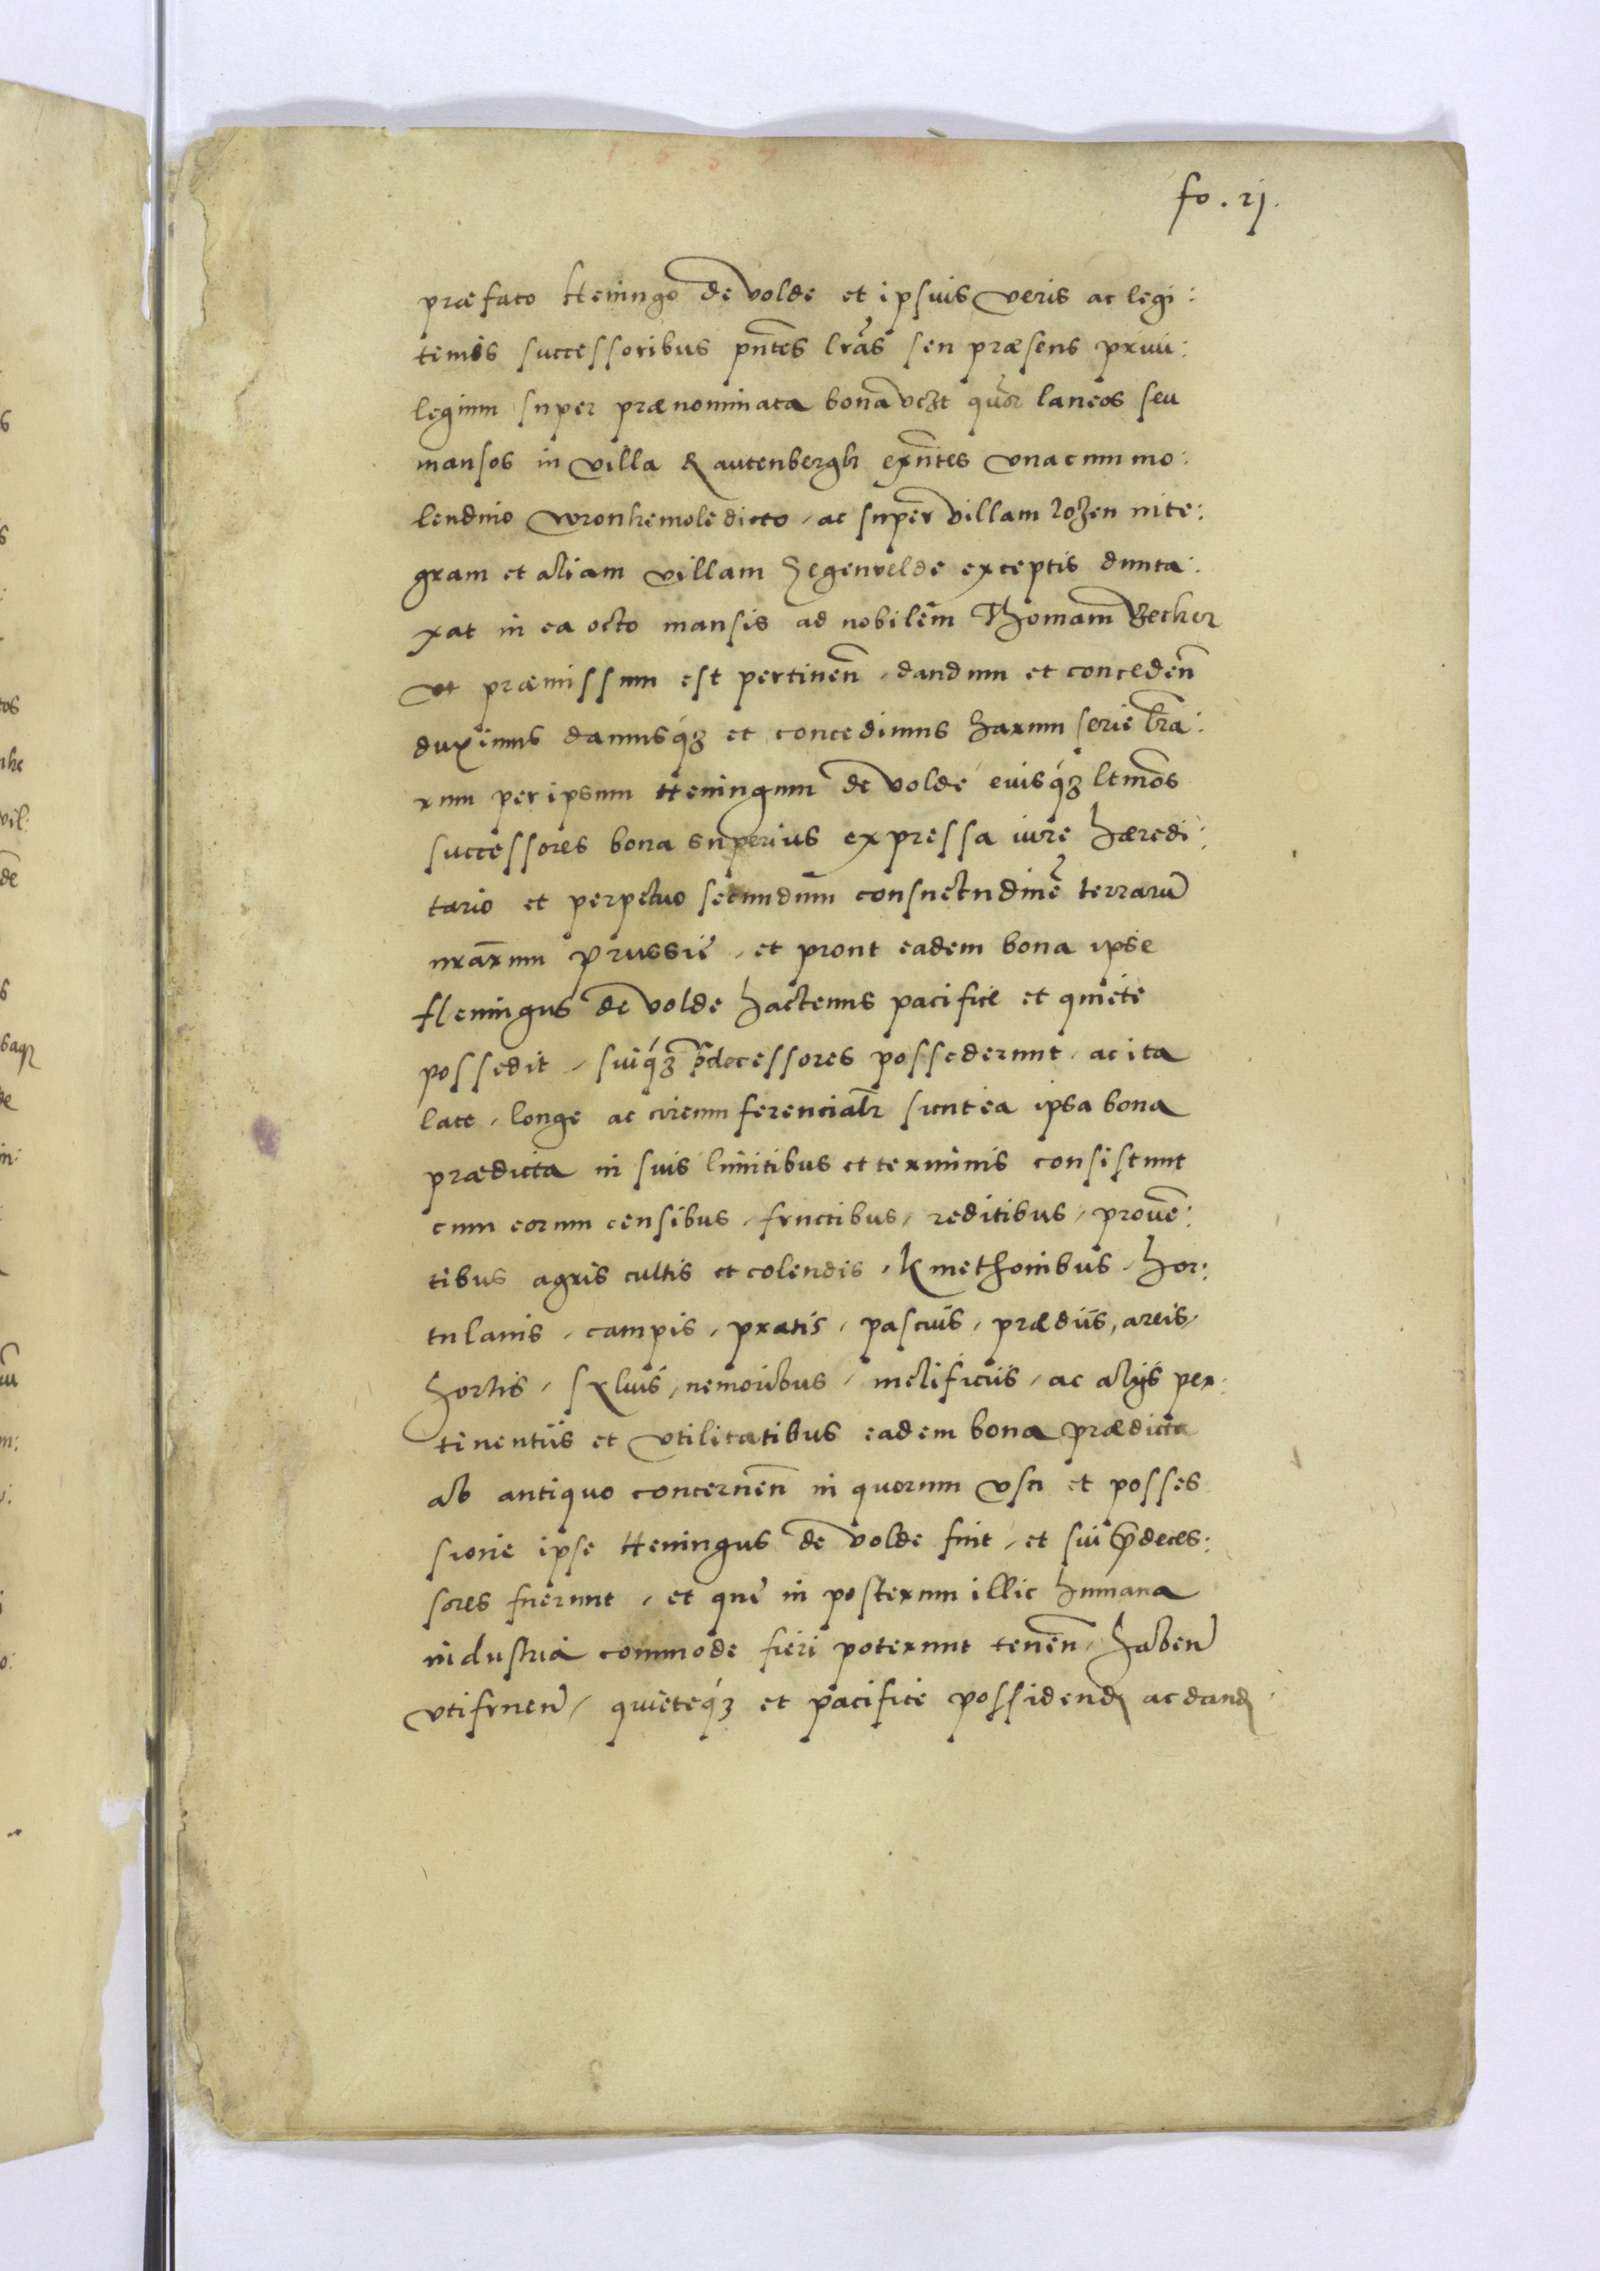 fo. 2j.
præfato Heningo de Volde et ipsius veris ac legi:
timis successoribus pñtes lrãs seu præsens priui:
legium super prænominata bona vczt quor laneos seu
mansos in villa Rautenbergh exñtes vna cum mo:
lendino Wronhemole dicto, ac super villam Rozen inte:
gram et aliam villam Hegenvelde exceptis dunta:
xat in ea octo mansis ad nobilem Thomam Becker
vt præmissum est pertineñ, dandum et concedeñ
duximus damusq́ꝫ et concedimus harum serie lrã:
rum per ipsum Heningum de Volde eiusq́ꝫ ltimos
successores bona superius expressa iure hæredi:
tario et perpetuo secundum consuetudinē terrarũ
nrãrum Prussię, et prout eadem bona ipse
Heningus de Volde hactenus pacifice et quiete
possedit, suiq́ꝫ p̃decessores possederunt, ac ita
late, longe ac circumferencialr̃ sicut ea ipsa bona
prædicta in suis limitibus et terminis consistunt
cum eorum censibus, fructibus, reditibus, prouē:
tibus agris cultis et colendis, kmethonibus, hor:
tulanis, campis, pratis, pascuis, prædiis, areis,
hortis, syluis, nemoribus, mellificiis, ac alijs per:
tinentiis et vtilitatibus eadem bona prædicta
ab antiquo concerneñ in quorum vsu et posses
sione ipse Heningus de Volde fuit, et sui p̃deces:
sores fuerunt, et quę in posterum illic humana
industria commode fieri poterunt teneñ, habeñ
vtifrueñ, quieteq́ꝫ et pacifice possidend ac dand